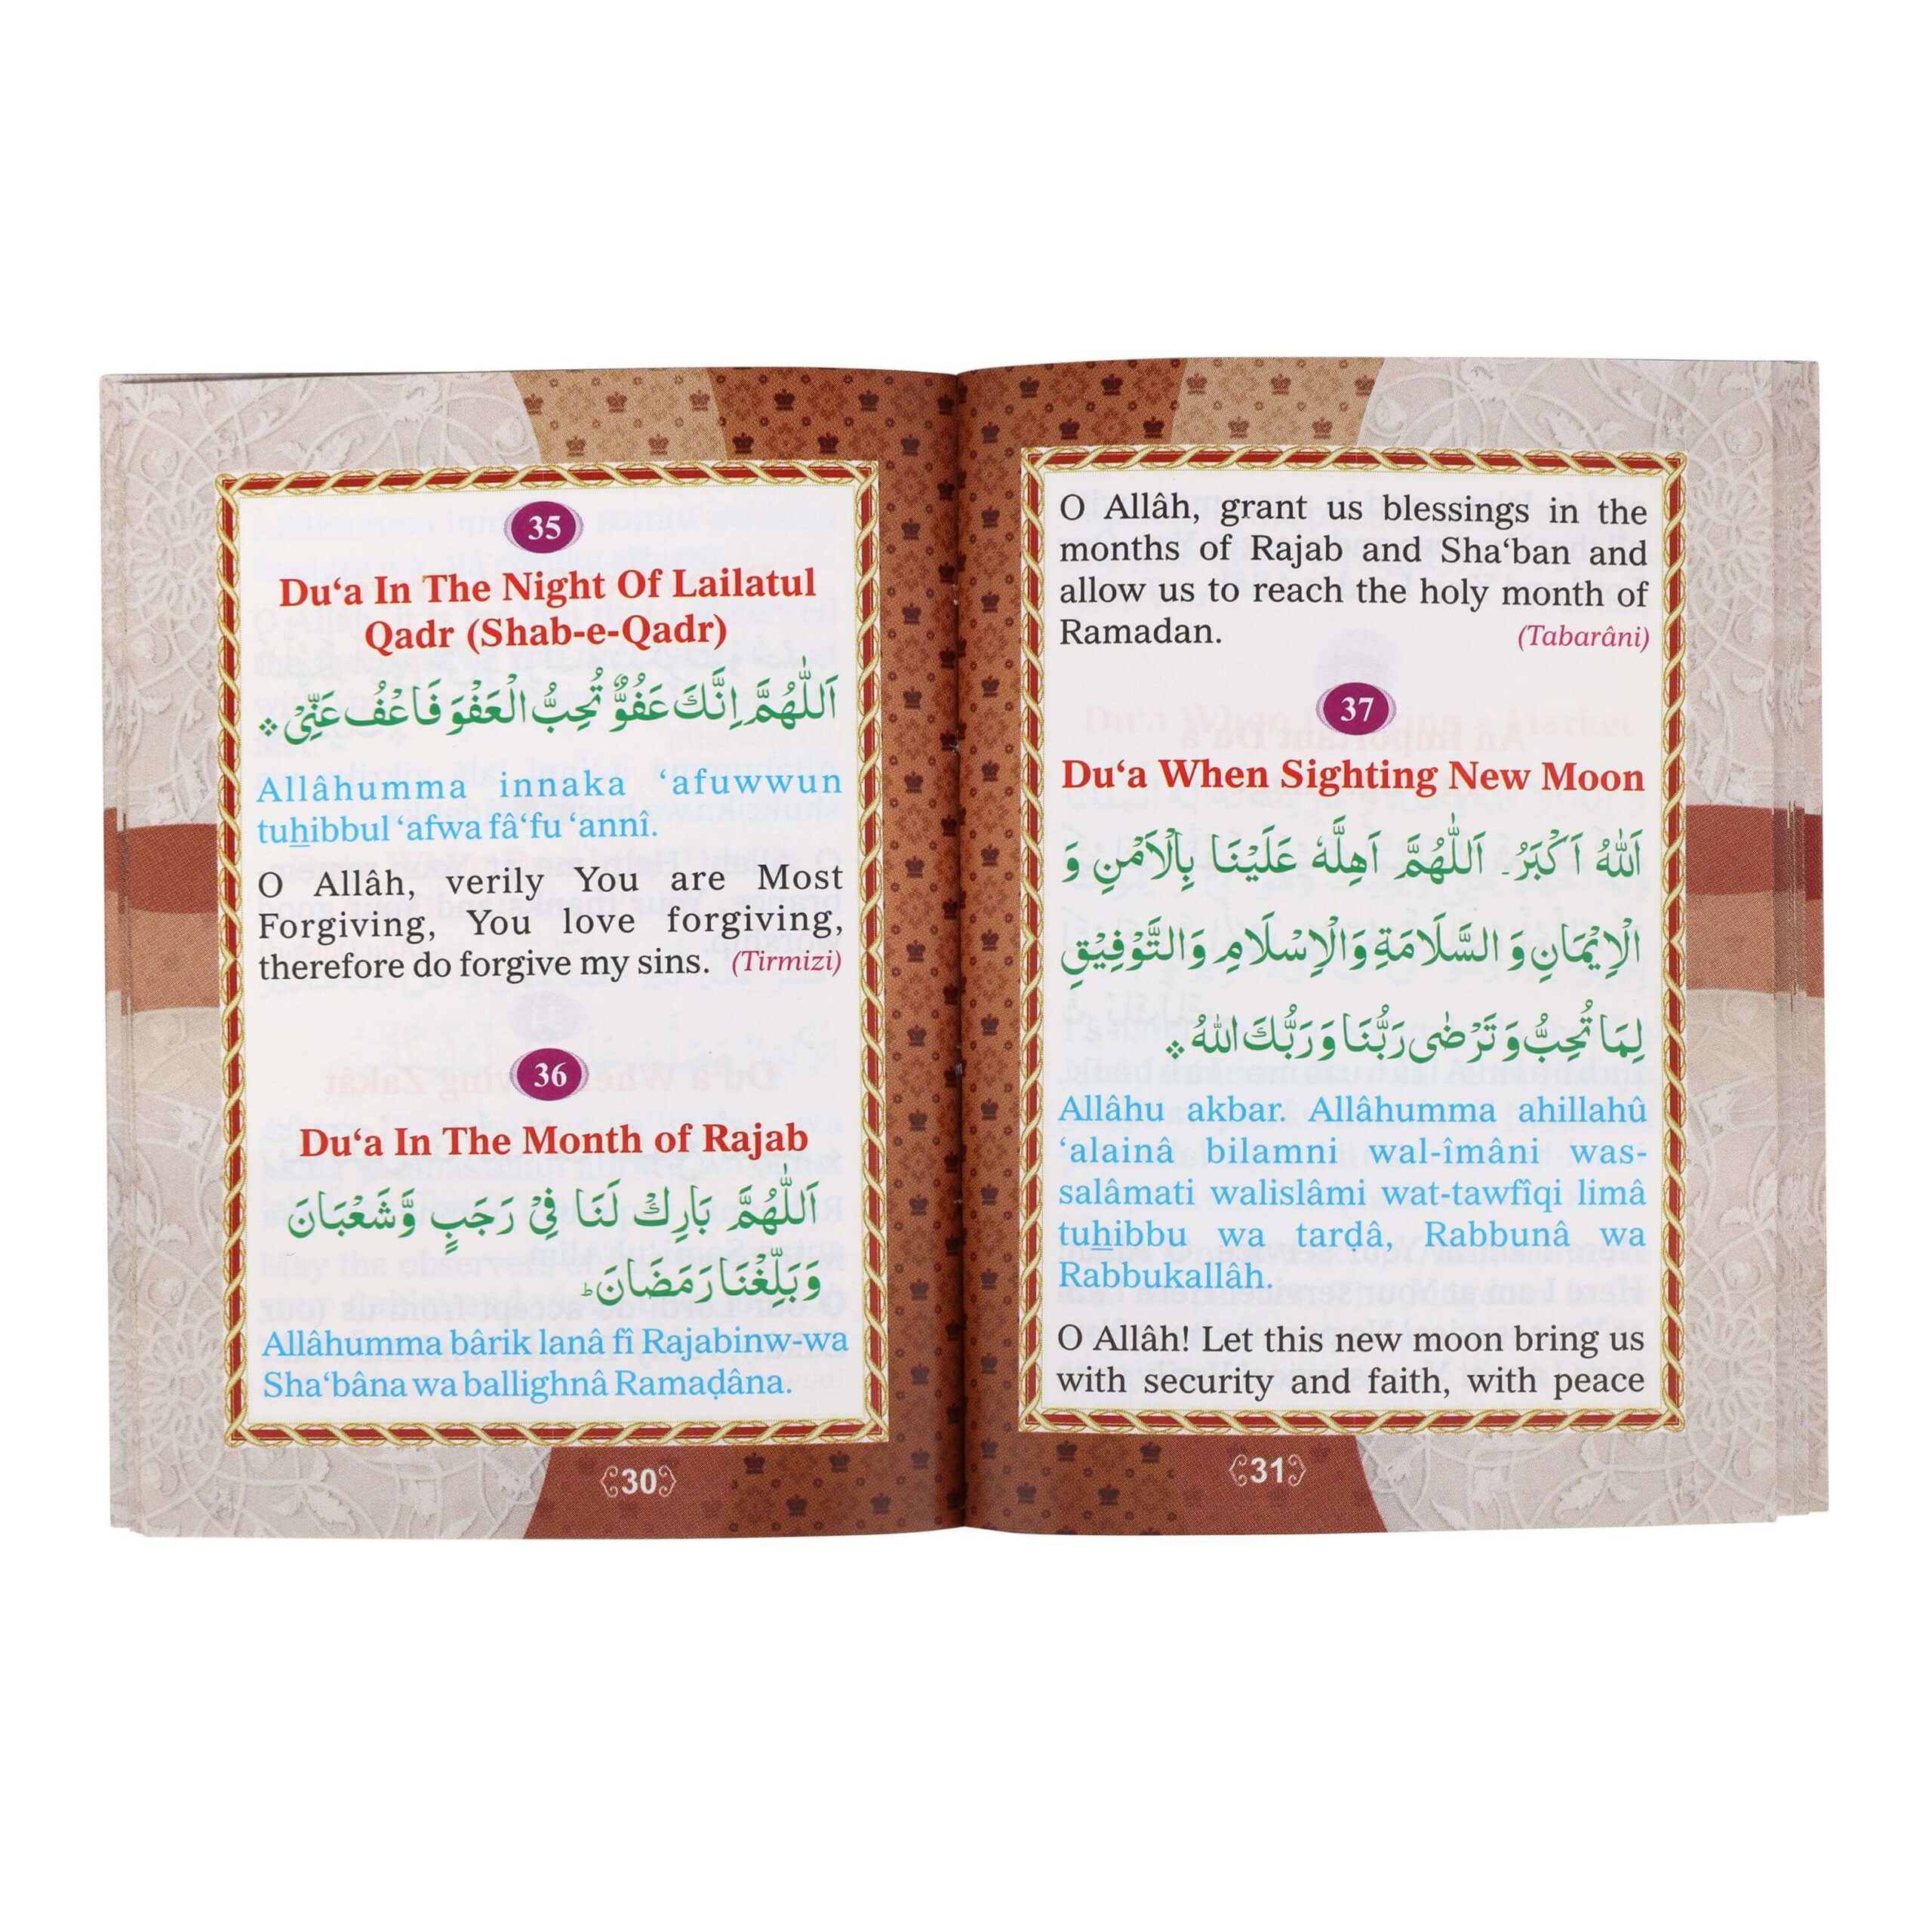 35
Du‘a In The Night Of Lailatul
Qadr (Shab-e-Qadr)
اَللّٰهُمَّ اِنَّكَ عَفُوٌّ تُحِبُّ الْعَفْوَ فَاعْفُ عَنِّیْ
Allâhumma innaka ‘afuwwun
tuẖibbul ‘afwa fâ‘fu ‘annî.
O Allâh, verily You are Most
Forgiving, You love forgiving,
therefore do forgive my sins. (Tirmizi)
36
Du‘a In The Month of Rajab
اَللّٰهُمَّ بَارِكْ لَنَا فِیْ رَجَبٍ وَّشَعْبَانَ
وَبَلِّغْنَا رَمَضَانَ۔ؕ
Allâhumma bârik lanâ fî Rajabinw-wa
Sha‘bâna wa ballighnâ Ramaḍâna.
30
O Allâh, grant us blessings in the
months of Rajab and Sha‘ban and
allow us to reach the holy month of
Ramadan. (Tabarâni)
37
Du‘a When Sighting New Moon
اَللّٰهُ اَكْبَرُ۔ اَللّٰهُمَّ اَهِلَّهٗ عَلَيْنَا بِالْاَمْنِ وَ
الْاِيْمَانِ وَ السَّلَامَةِ وَالْاِسْلَامِ وَالتَّوْفِيْقِ
لِمَا تُحِبُّ وَ تَرْضٰی رَبُّنَا وَ رَبُّكَ اللّٰهُ
Allâhu akbar. Allâhumma ahillahû
‘alainâ bilamni wal-îmâni was-
salâmati walislâmi wat-tawfîqi limâ
tuẖibbu wa tarḍâ, Rabbunâ wa
Rabbukallâh.
O Allâh! Let this new moon bring us
with security and faith, with peace
31